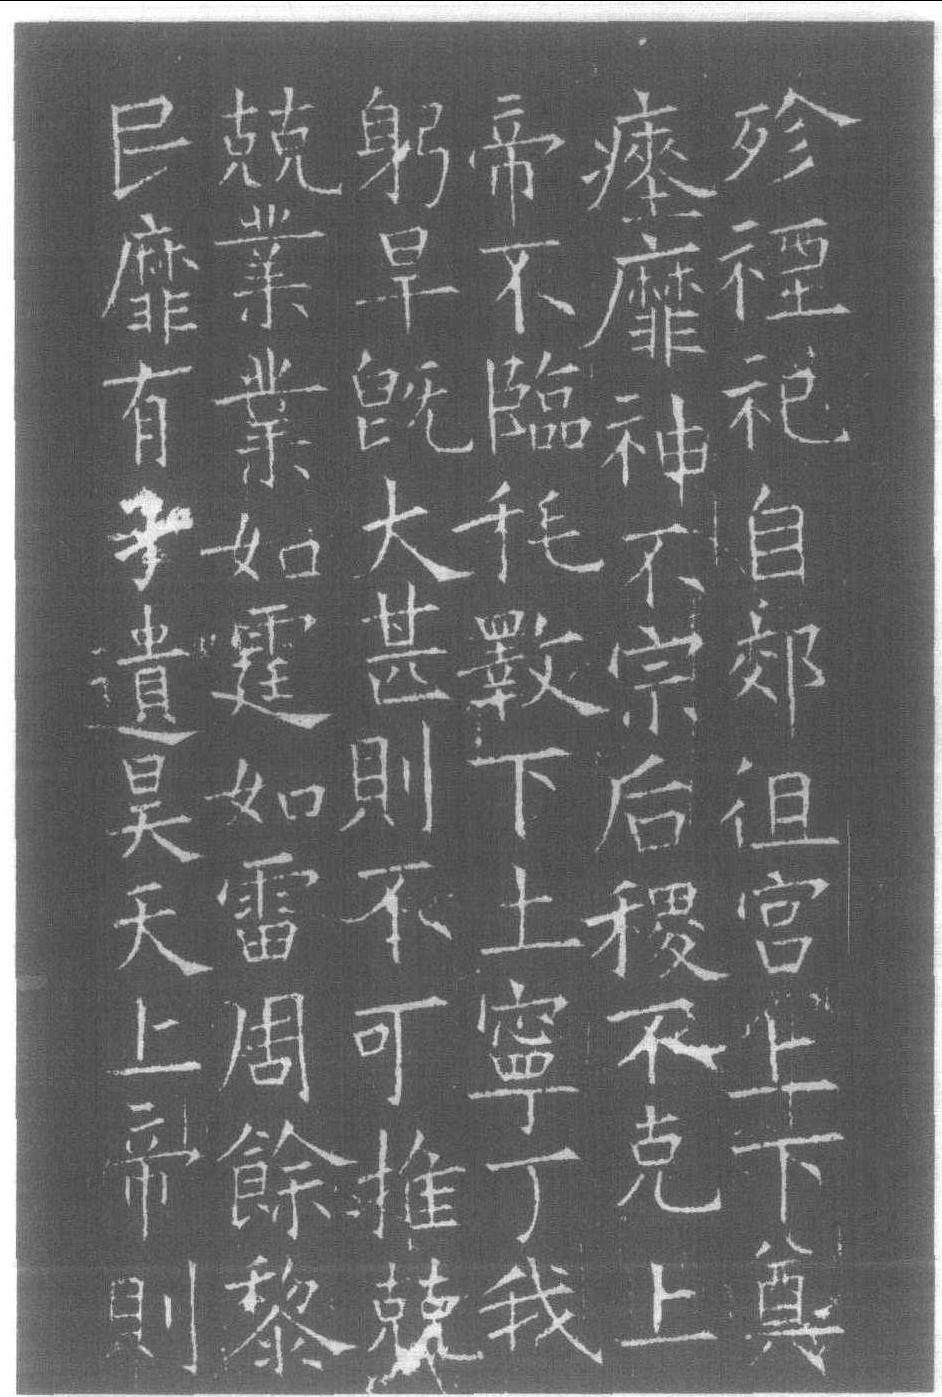 殄禋祀自郊徂宫上下奠
瘞靡神不宗后稷不克上
帝不臨秏斁下土寧丁我
躬旱既大甚則不可推兢
兢業業如霆如雷周餘黎
民靡有孑遺昊天上帝則